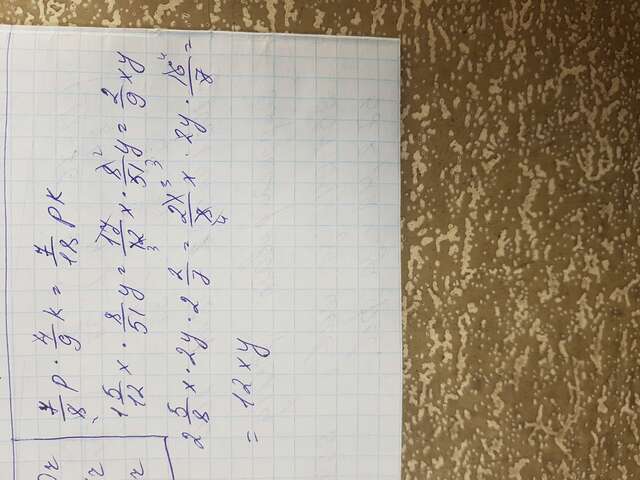 7/8 p · 4/9 k = 7/18 pk
1 5/12 x · 8/51 y = 17/12 3 x · 8 2/51 3 y = 2/9 xy
2 5/8 x · 2y · 2 2/7 = 21 3/8 4 x · 2y · 16 4/7 =
= 12xy